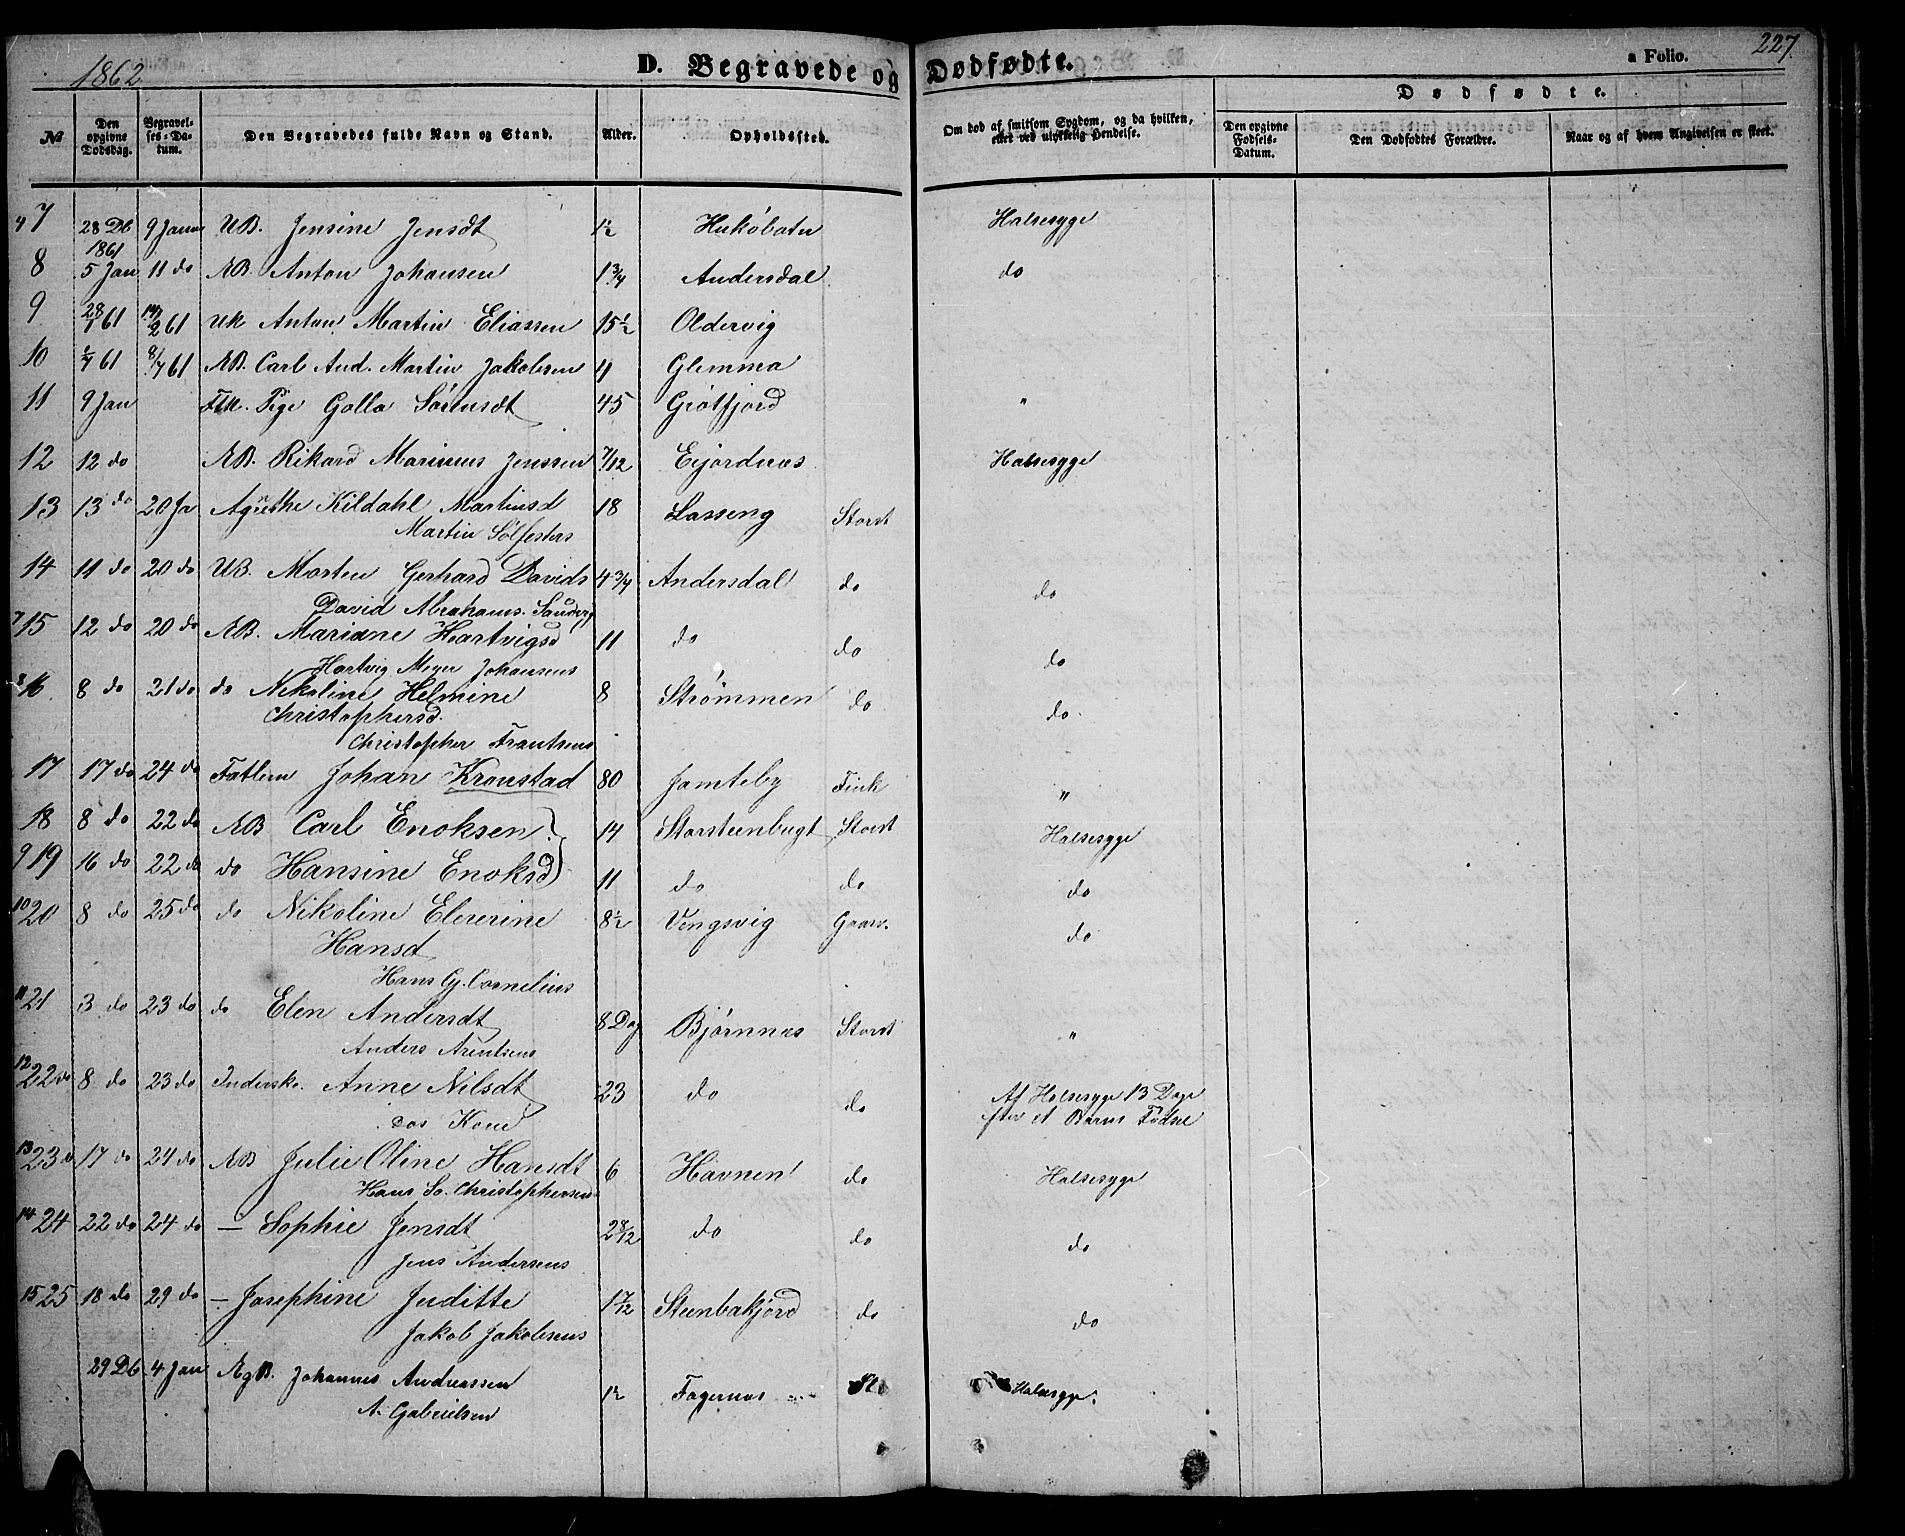 1862
D. Begravede og Dødfødte.
a Folio. 227.
№
Den opgivne Dødsdag.
Begravelses-Datum.
Den Begravedes fulde Navn og Stand.
Alder.
Opholdssted.
Om død af smitsom Sygdom, og da hvilken, eller ved ulykkelig Hendelse.
Dødfødte.
Den opgivne Fødsels-Datum.
Den Dødfødtes Forældre.
Naar og af hvem Angivelsen er skeet.
7 28 Db 1861 9 Janu UB. Jensine Jensdt 1½ Halsesyge
8 5 Jan 11 do ÆB. Anton Johansen 1 3/4 Andersdal do
9 28/1 61 61 UK Anton Martin Eliassen 15½ Oldervig
10 61 61 ÆB. Carl And. Martin Jakobsen 11 Glemma
11 9 Jan Pige Golla Sørensdt 45 Grøtfjord "
12 12 do ÆB. Rikard Marinus Jenssen 7/12 Eijordnæs Halsesyge
13 13 do 20 Ja Kildahl Martinsd 18 Lasseng Storst
Martin
14 11 do 20 do UB. Morten Gerhard Davids 4 3/4 Andersdal do do
David Abrahams.
7 15 12 do 20 do ÆB. Mariane Hartvigsd 11 do do do
Hartvig Meyer Johansens
8 16 8 do 21 do do Nikoline Helmine 8 Strømmen do do
Christophersd.
Christopher Frantsens
17 17 do 24 do Fatlem Johan Kronstad 80 Jamteby Fink "
18 8 do 22 do ÆB Carl Enoksen 14 Storsteenbugt Storst Halsesyge
9 19 16 do 22 do do Hansine Enoksd 11 do do do
10 20 8 do 25 do do Nikoline Elererine 8½ Vengsvig do
Hansd
Hans Cornelius
11 21 3 do 23 do do Elen Andersdt 8 Dag Bjørnnes Storst "
Anders Arentsens
12 22 do 8 do 23 do Indersko. Anne Nilsdt 23 do do Af Halsesyge 13 Dage
efter et Barns Fødsel
Kone
13 23 17 do 24 do ÆB Julie Oline Hansdt 6 Havnen do Halsesyge
Hans So. Christophersens
14 24 22 do 24 do — Sophie Jensdt 2 8/12 do do do
Jens Andersens
15 25 18 do 29 do — Josephine Juditte 1 7/12 Steenbakjord do do
Jakob Jakobsens
29 Db 4 Jan ÆgB. Johannes Andreassen 1½ Fagernæs Halsesyge.
A. Gabrielsen